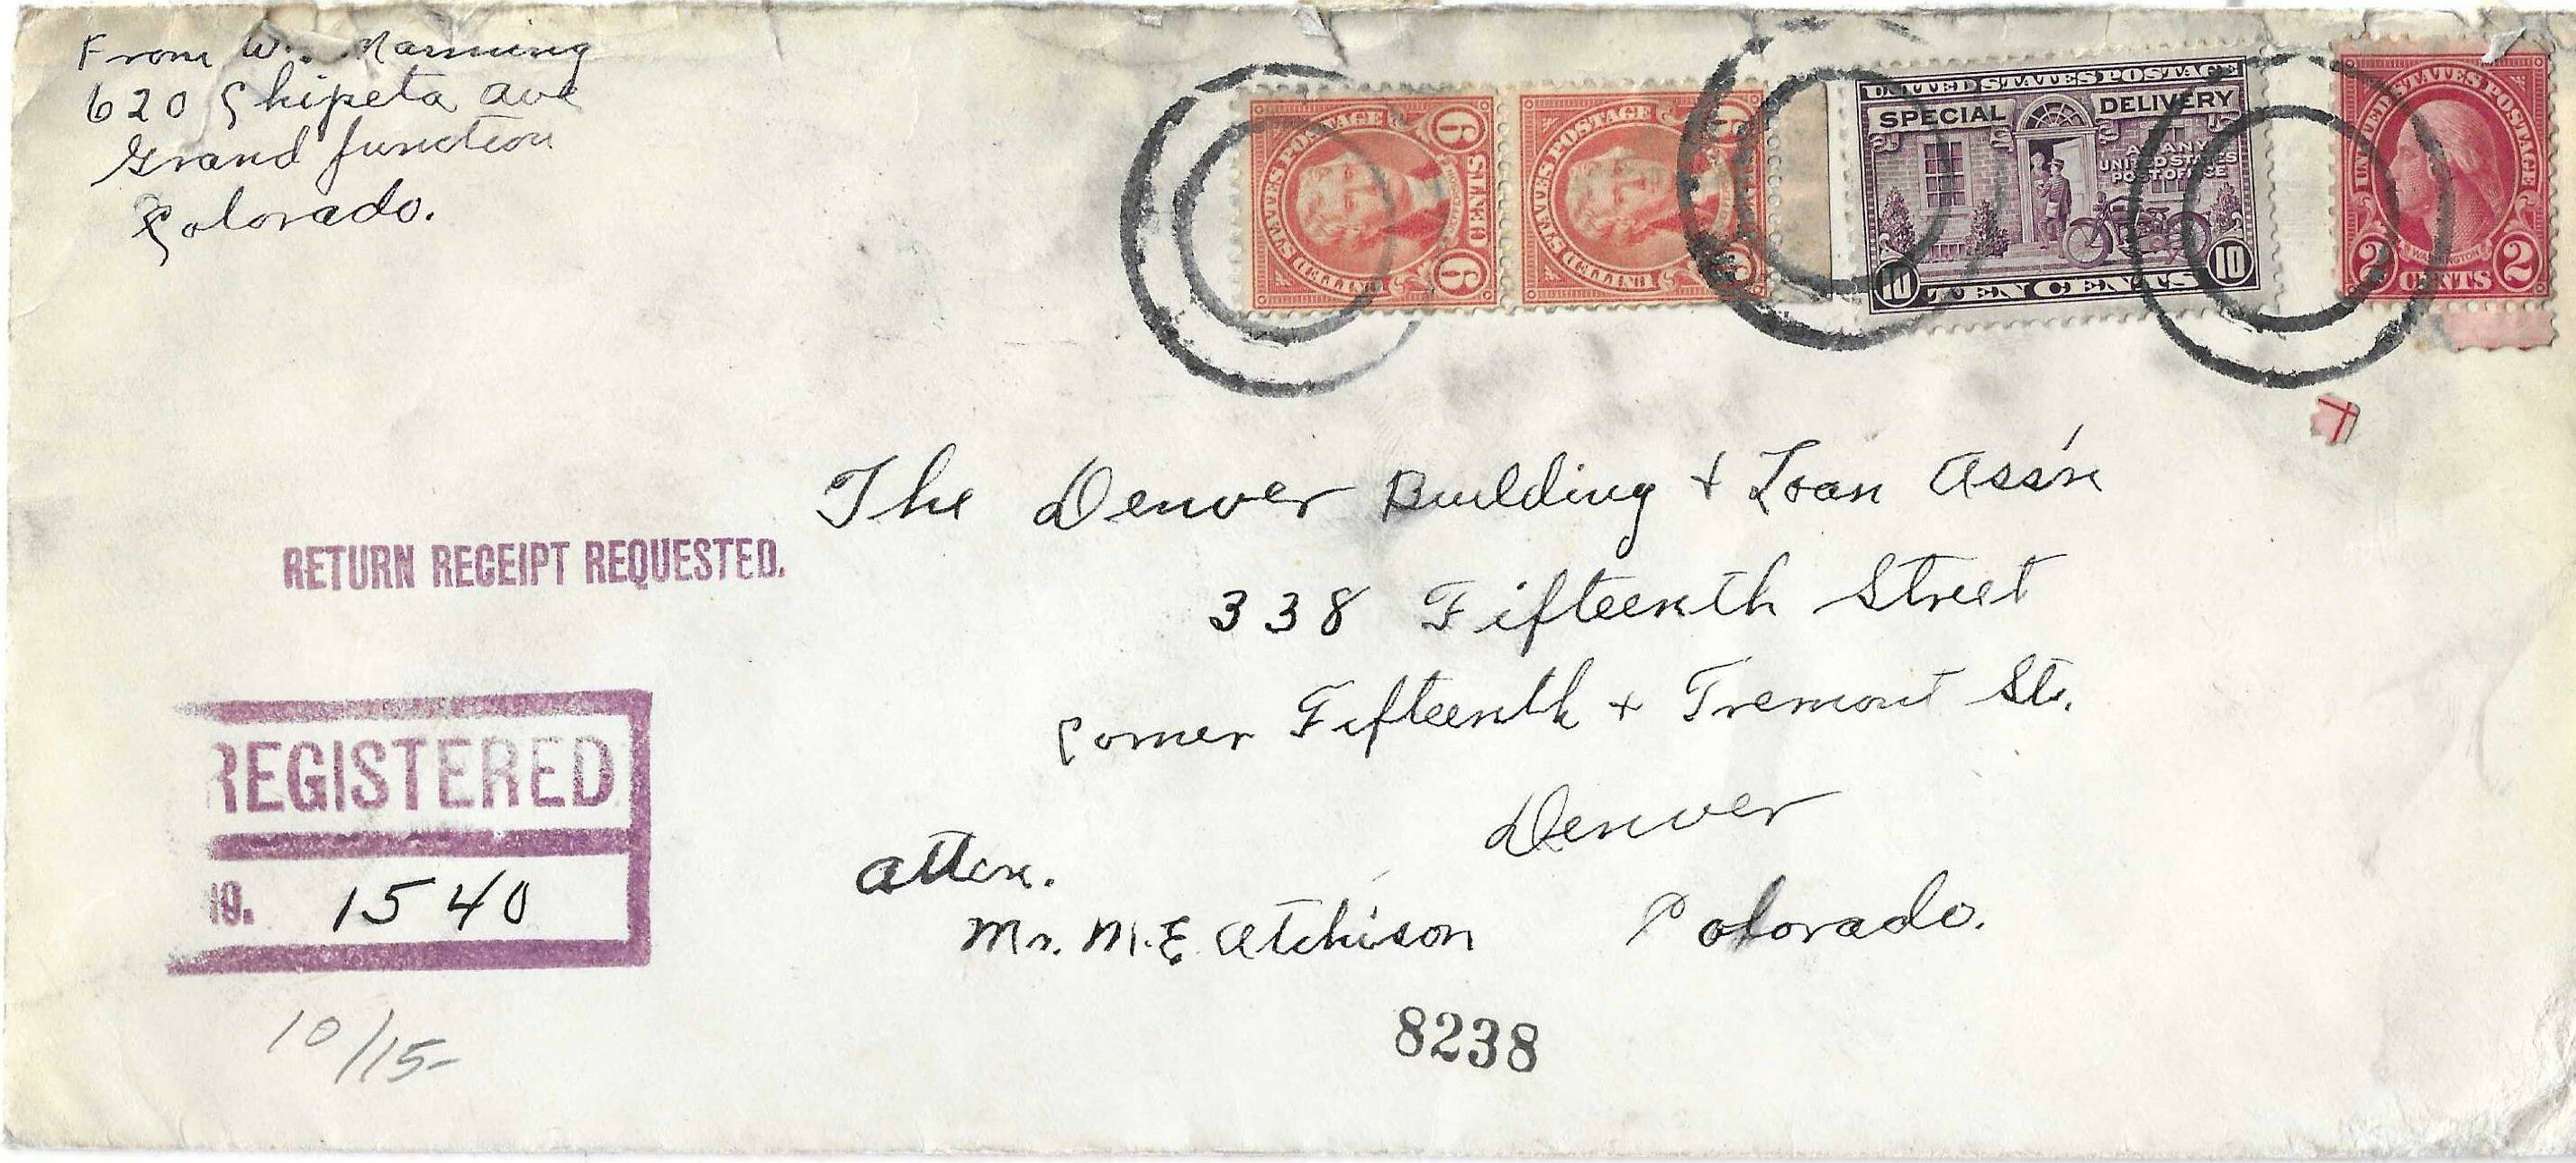 From W. Manning
620 Chipeta ave
Grand Junction
Colorado.
UNITED STATES POSTAGE
6 CENTS 6
STATES POSTAGE
6
UNITED STATES POSTAGE
SPECIAL DELIVERY
AT ANY
UNITED STATES
POST OFFICE
10 TEN CENTS 10
UNITED STATES POSTAGE
WASHINGTON
2 CENTS 2
The Denver Building + Loan Ass'n
338 Fifteenth Street
Corner Fifteenth + Tremont St.
Denver
Colorado.
atten.
Mr. M.E. Atchison
RETURN RECEIPT REQUESTED.
REGISTERED
NO. 1540
10/15-
8238